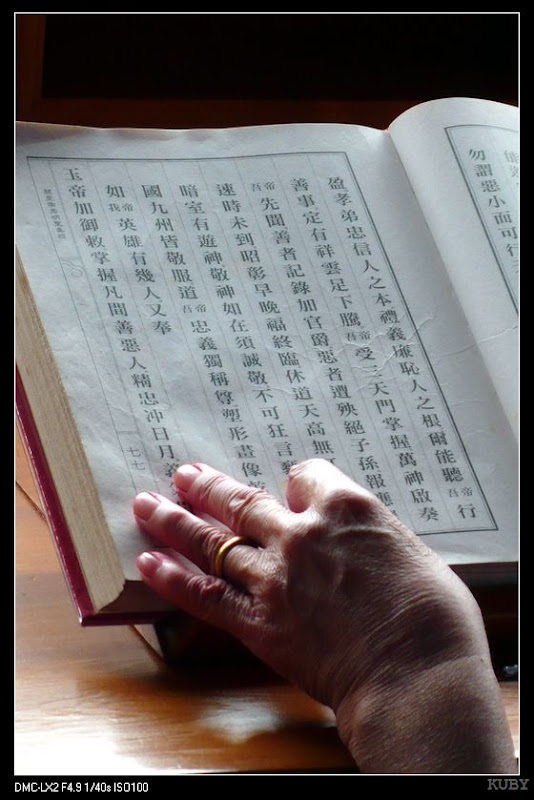 勿謂惡小而可行
盈孝弟忠信人之本禮義廉恥人之根爾能聽吾帝行
善事定有祥雲足下騰吾帝受三天門掌握萬神啟奏
吾帝先聞善者記錄加官爵惡者遭殃絕子孫報應
速時未到昭彰早晚福終臨休道天高無
暗室有遊神敬神如在須誠敬不可狂言
國九州皆敬服道吾帝忠義獨稱尊塑形畫像
如我帝英雄有幾人又奉
玉帝加御敕掌握凡間善惡人精忠沖日月義
七七
DMC-LX2 F4.9 1/40s ISO100
KUBY